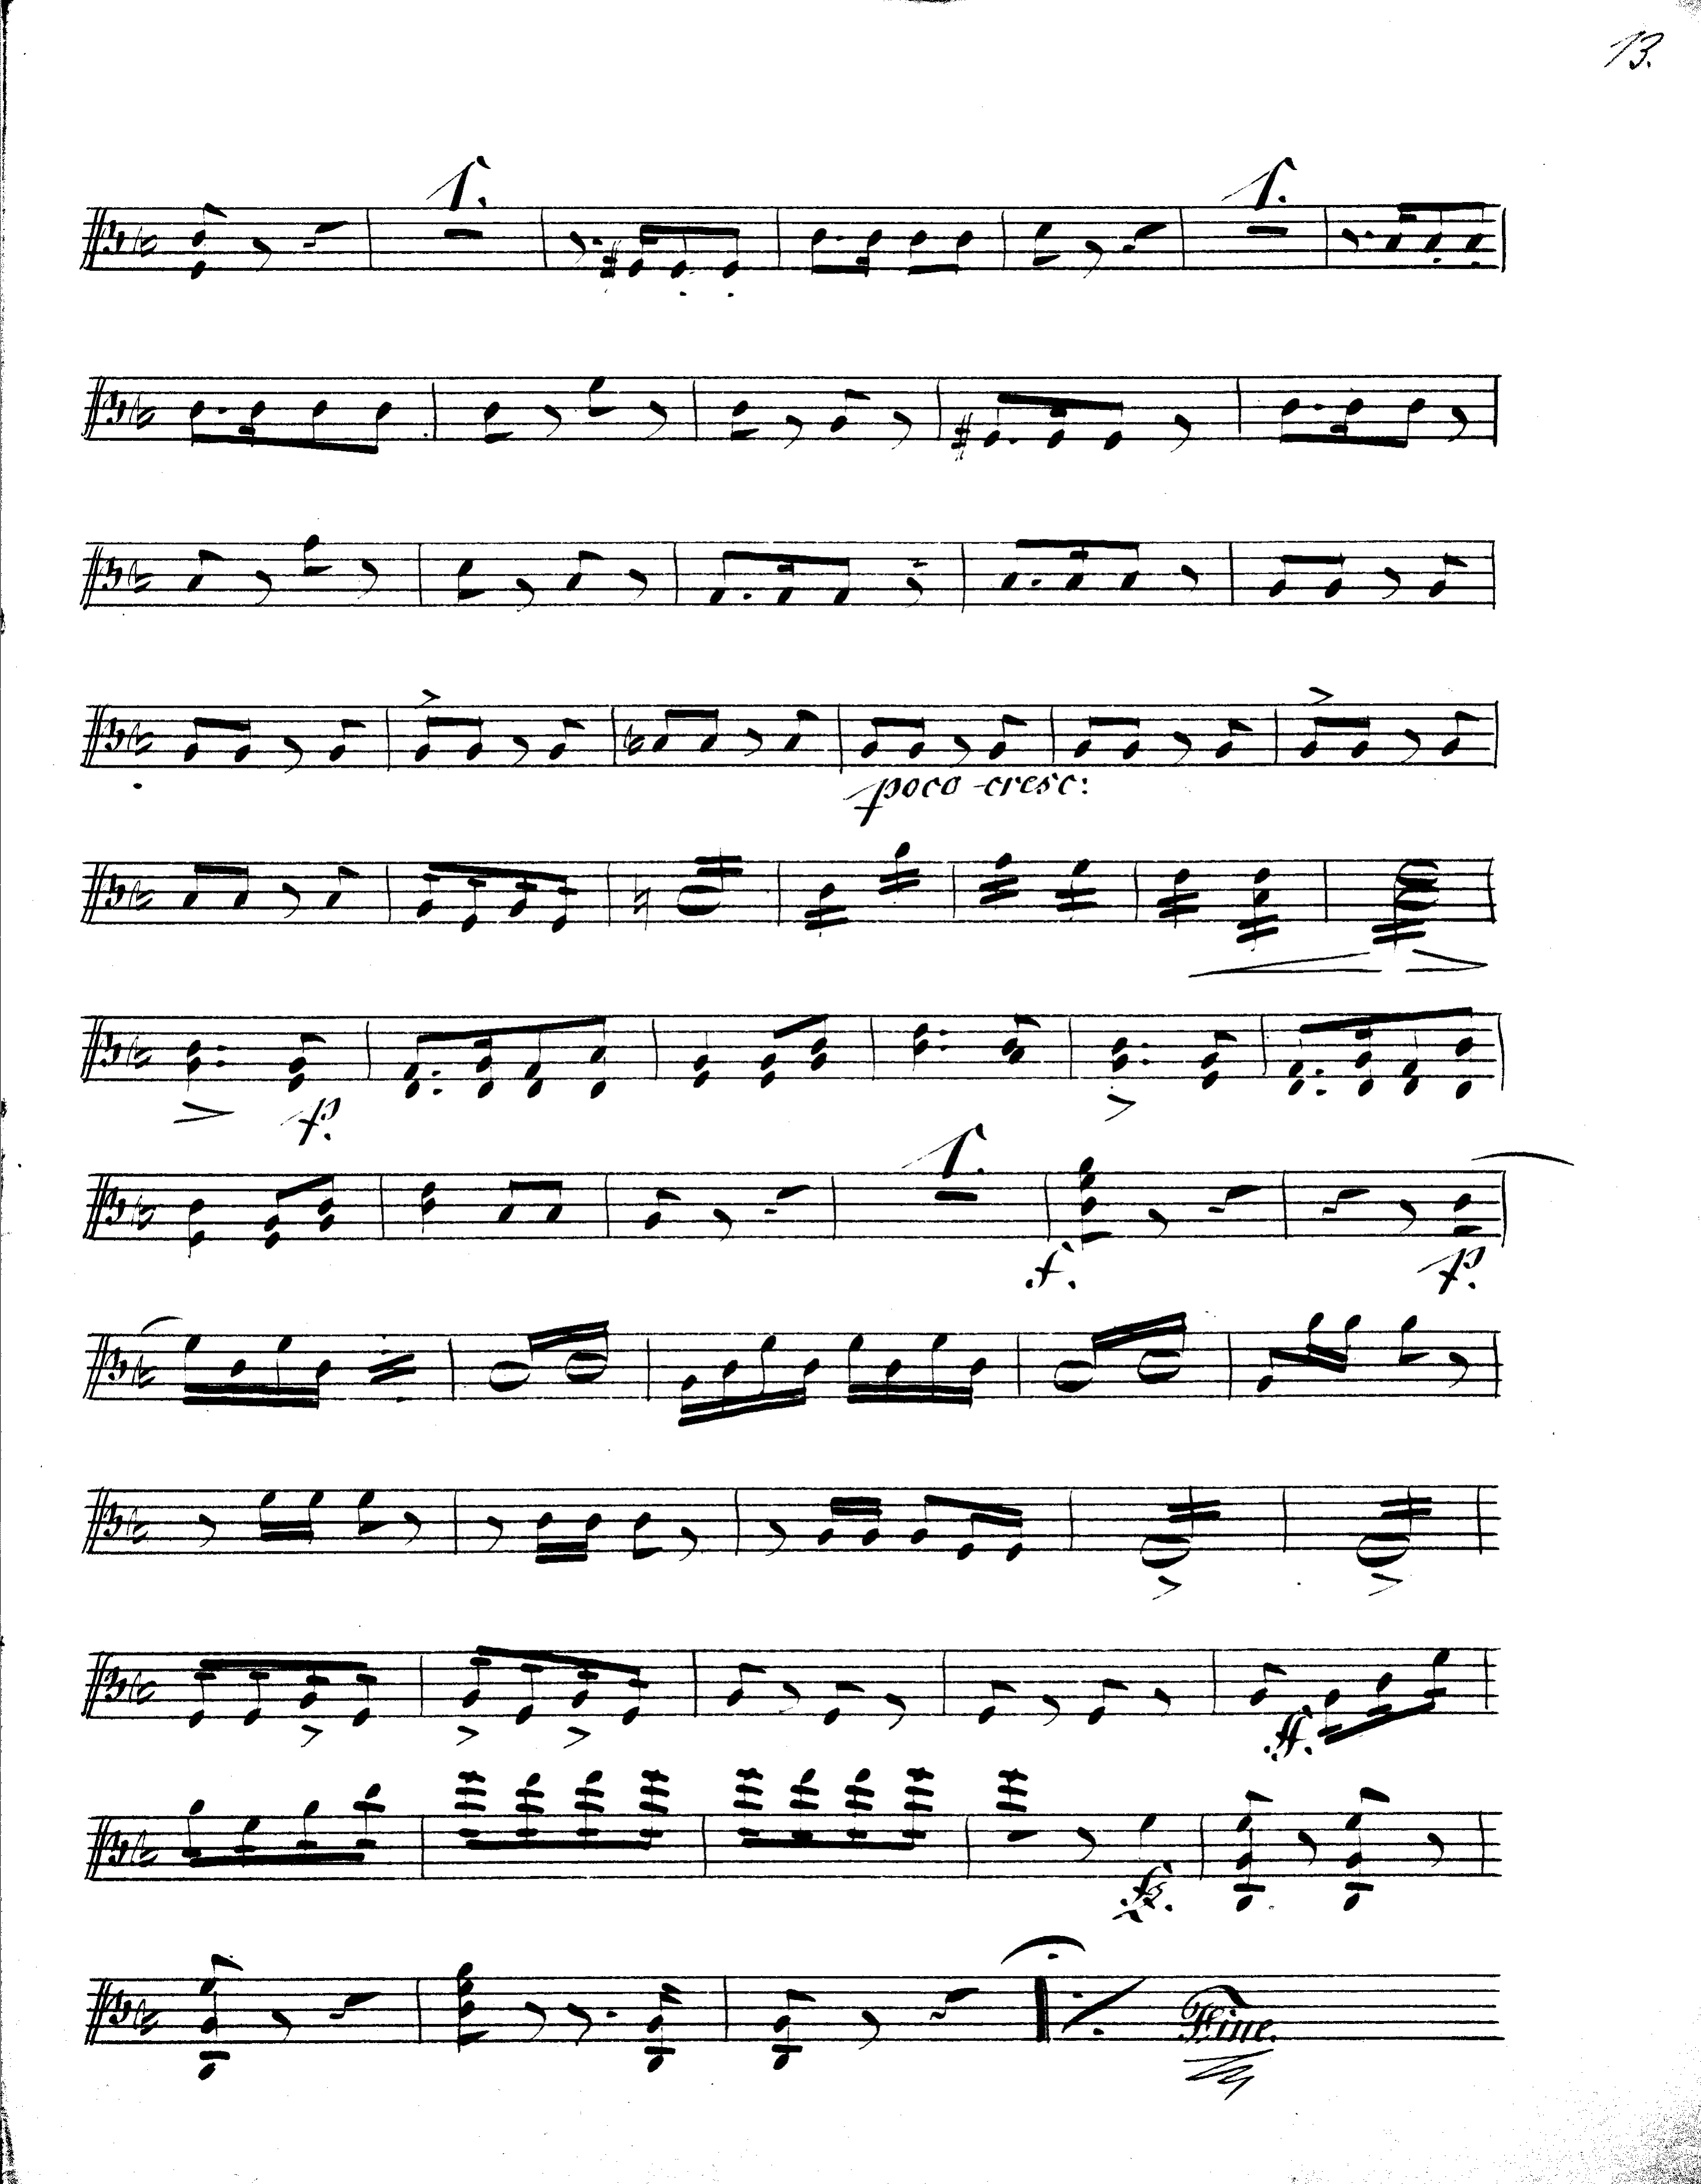 13.
1. 1.
poco cresc:
p.
1.
f. p.
ff.
fz.
Fine.